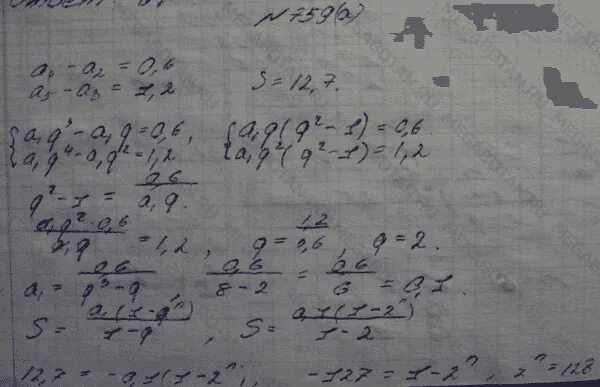 N759(а)
a₄ - a₂ = 0,6
a₅ - a₃ = 1,2
S = 12,7.
{ a₁q³ - a₁q = 0,6,
a₁q⁴ - a₁q² = 1,2
{ a₁q(q² - 1) = 0,6.
a₁q²(q² - 1) = 1,2
q² - 1 = 0,6 / a₁q.
a₁q² · 0,6 / a₁q = 1,2, q = 1,2 / 0,6, q = 2.
a₁ = 0,6 / q³ - q 0,6 / 8 - 2 = 0,6 / 6 = 0,1.
S = a₁(1 - qⁿ) / 1 - q, S = 0,1(1 - 2ⁿ) / 1 - 2
12,7 = -0,1(1 - 2ⁿ), -127 = 1 - 2ⁿ, 2ⁿ = 128